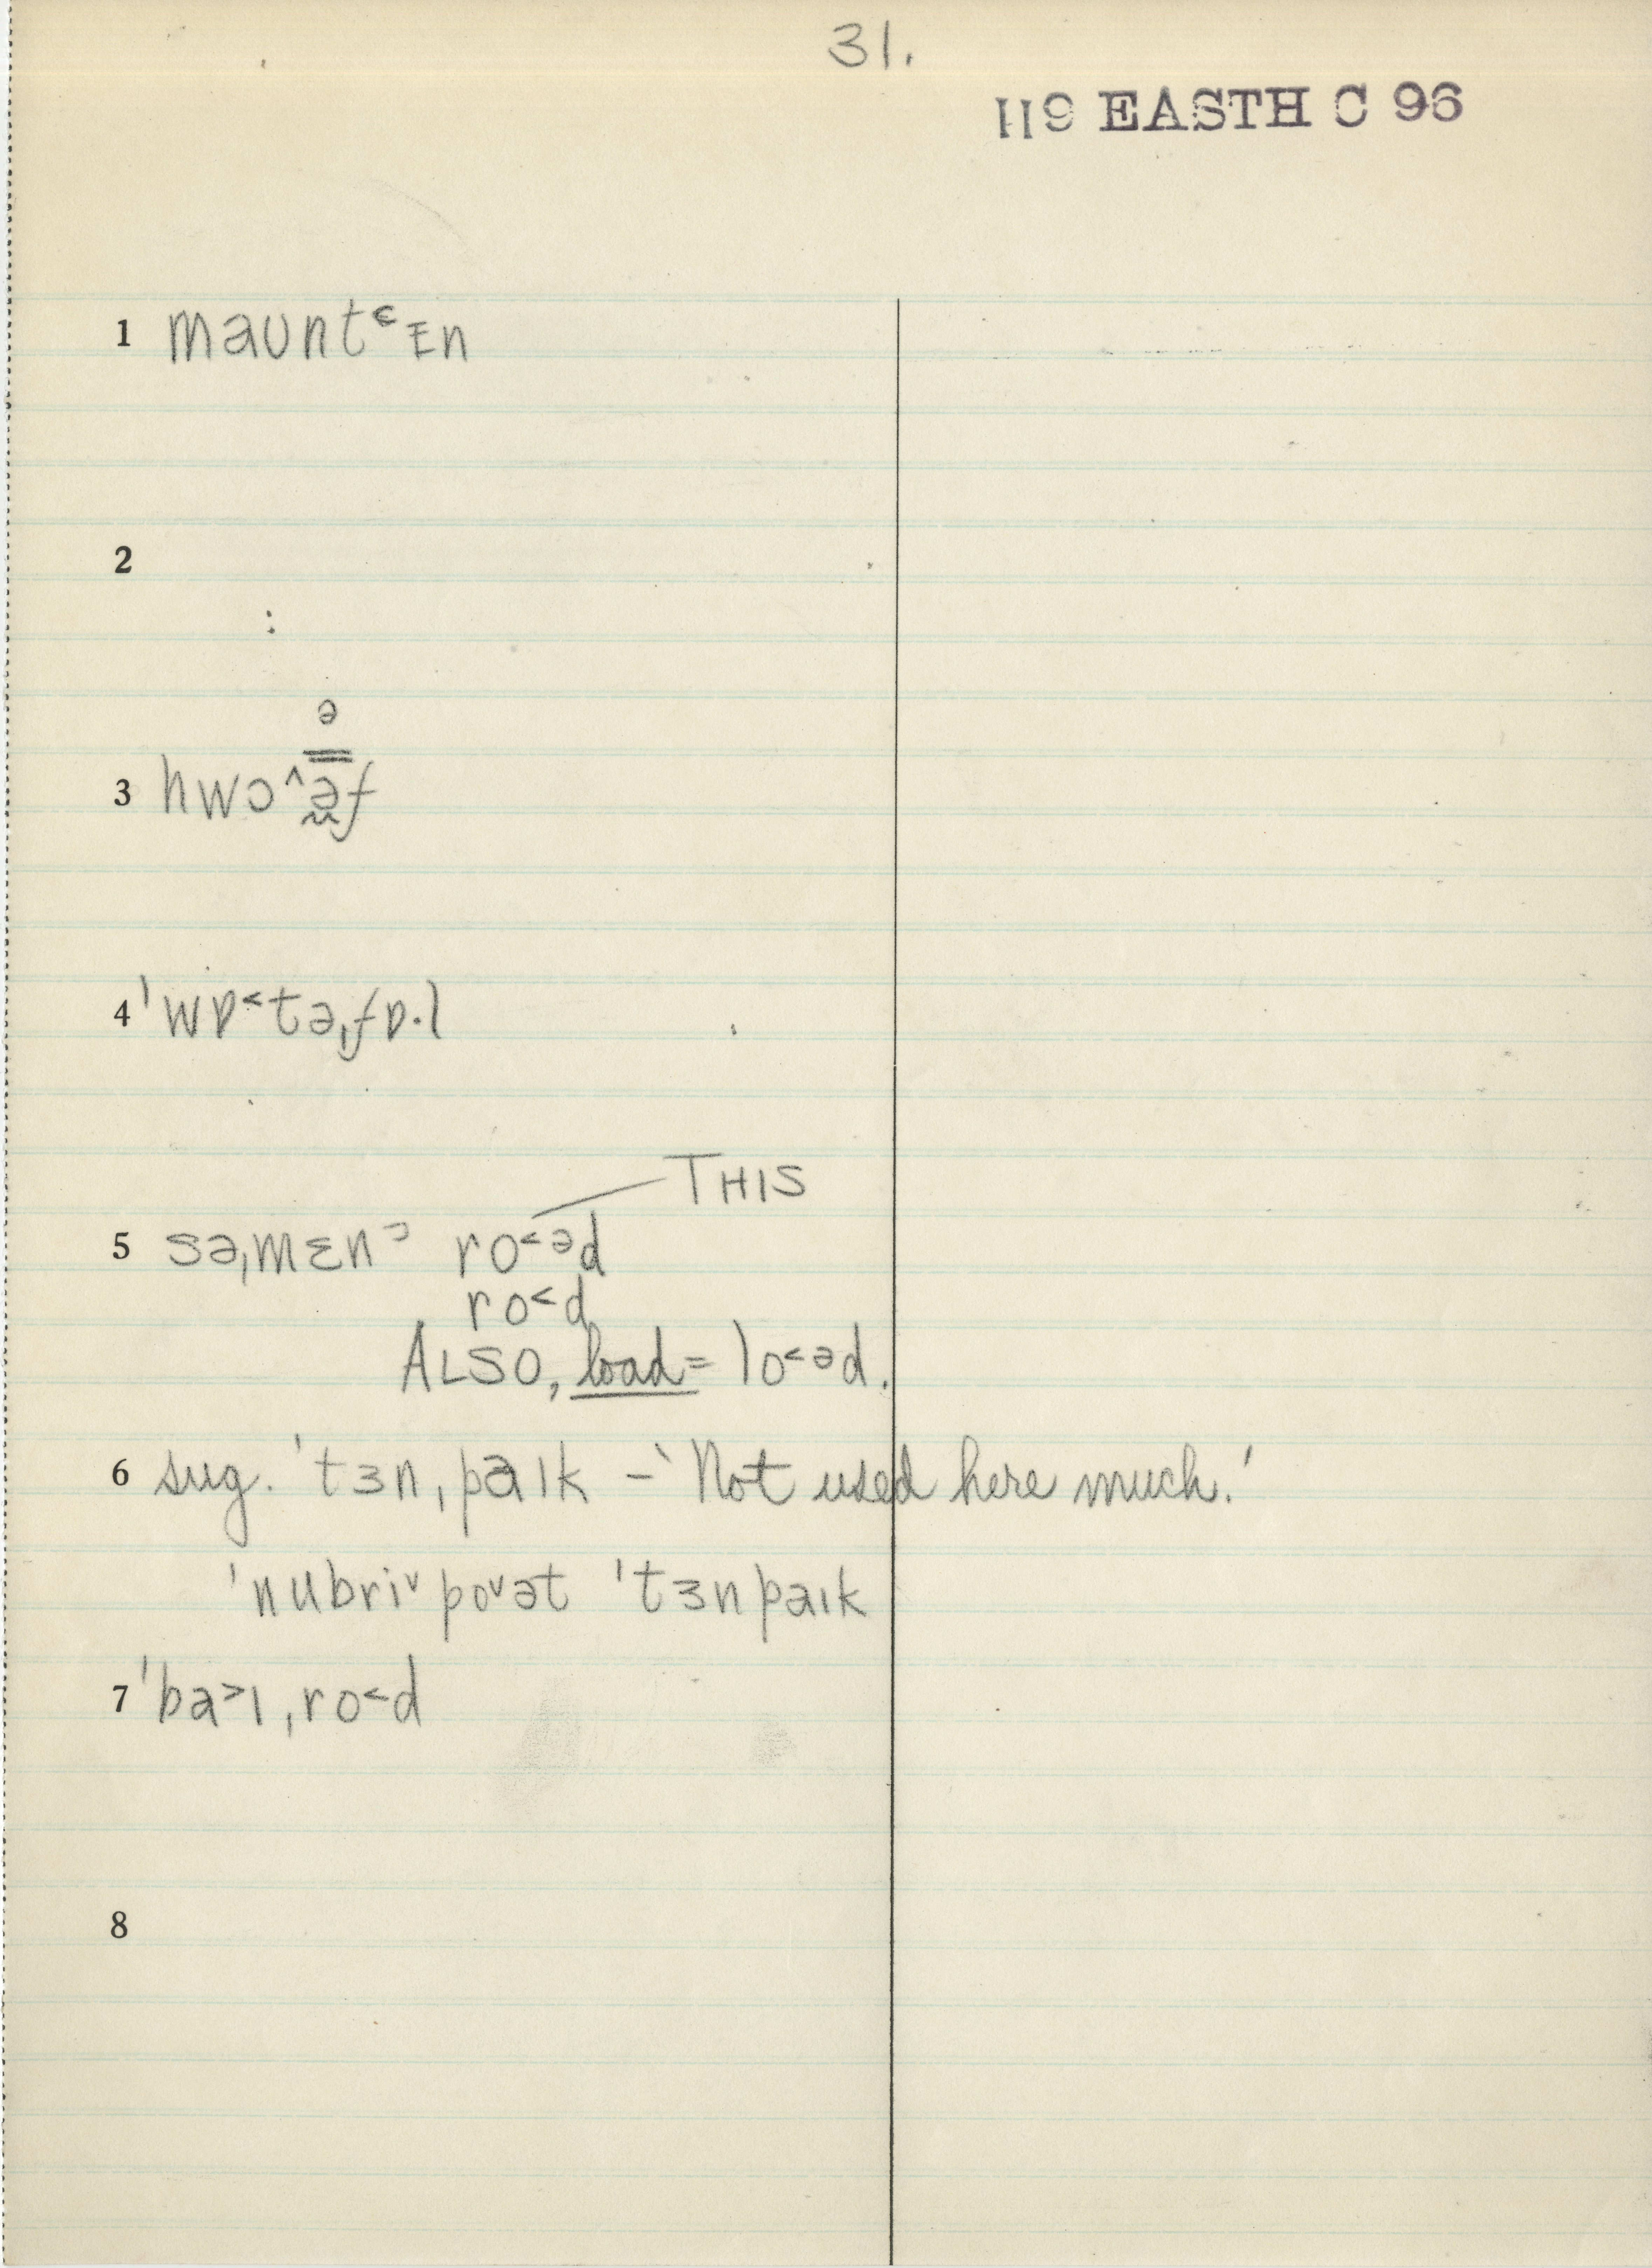 31.
119 EASTH C 96
1 maʊntᵋɪn
2
ə
3 hwɔ^əf
4 ˈwɒ˂təˌfɒ·l
THIS
5 səˌmɛnᵊ ro˂əd
ro˂d
ALSO, load = lo˂əd.
6 sug. ˈtɜnˌpaɪk – 'Not used here much.'
ˈnubri˅po˅ət ˈtɜnpaɪk
7 ˈba˃ɪˌro˂d
8